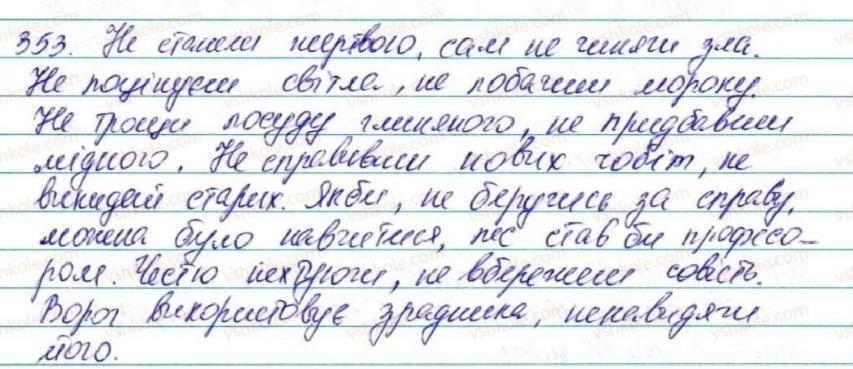 353. Не станеш жертвою, сам не чинячи зла.
Не поцінуєш світла, не побачивши мороку.
Не трощи посуду глиняного, не придбавши
мідного. Не справивши нових чобіт, не
викидай старих. Якби, не беручись за справу,
можна було навчитися, пес став би професо-
ром. Честю нехтуючи, не вбережеш совість.
Ворог використовує зрадника, ненавидячи
його.